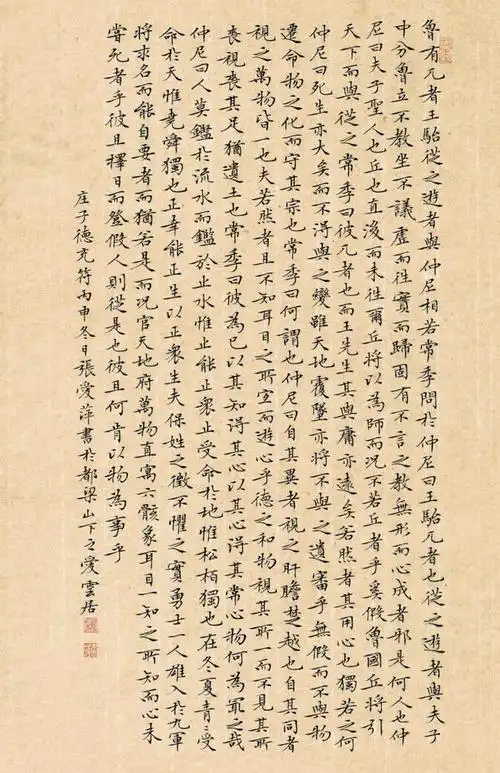 魯有兀者王駘從之遊者與仲尼相若常季問於仲尼曰王駘兀者也從之遊者與夫子
中分魯立不教坐不議虛而往實而歸固有不言之教無形而心成者邪是何人也仲
尼曰夫子聖人也丘也直後而未往爾丘將以為師而況不若丘者乎奚假魯國丘將引
天下而與從之常季曰彼兀者也而王先生其與庸亦遠矣若然者其用心也獨若之何
仲尼曰死生亦大矣而不得與之變雖天地覆墜亦將不與之遺審乎無假而不與物
遷命物之化而守其宗也常季曰何謂也仲尼曰自其異者視之肝膽楚越也自其同者
視之萬物皆一也夫若然者且不知耳目之所宜而遊心乎德之和物視其所一而不見其所
喪視喪其足猶遺土也常季曰彼為己以其知得其心以其心得其常心物何為最之哉
仲尼曰人莫鑑於流水而鑑於止水惟止能止眾止受命於地惟松栢獨也在冬夏青青受
命於天惟堯舜獨也正幸能正生以正眾生夫保始之徵不懼之實勇士一人雄入於九軍
將求名而能自要者而猶若是而況官天地府萬物直寓六骸象耳目一知之所知而心未
嘗死者乎彼且擇日而登假人則從是也彼且何肯以物為事乎
庄子德充符丙申冬日張愛萍書於都梁山下之愛雲居